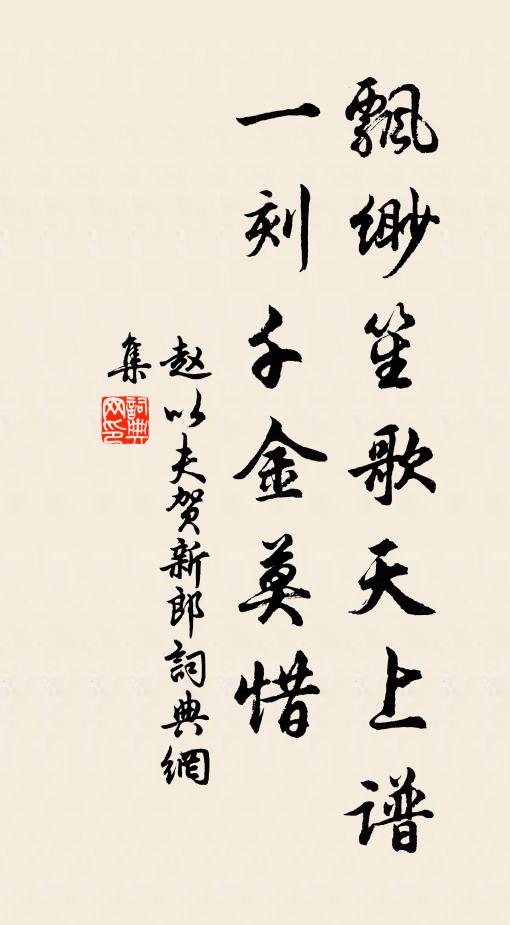 飄缈笙歌天上谱
一刻千金莫惜
赵以夫贺新郎詞典網
集
詞典网印